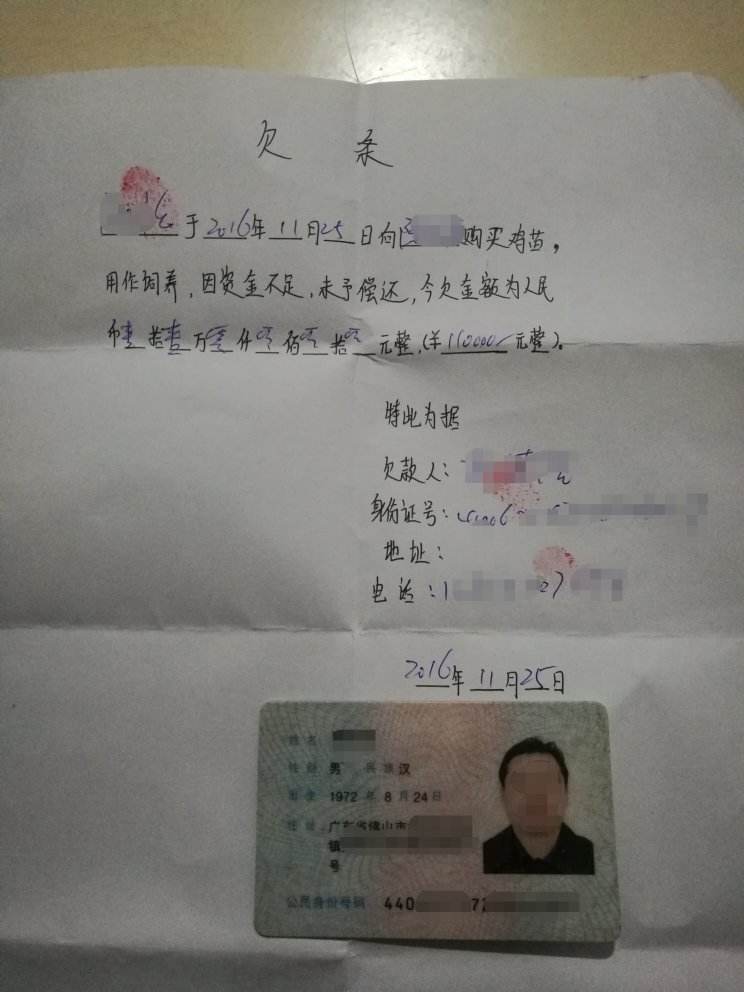 欠 条
于2016年11月25日向 购买鸡苗，
用作饲养，因资金不足，未予偿还，今欠金额为人民
币壹拾壹万零仟零佰零拾零元整（¥110000元整）。
特此为据
欠款人：
身份证号：
地址：
电话：1
2016年11月25日
姓名
性别 男 民族 汉
出生 1972 年 8 月 24 日
住址 广东省佛山市
镇
号
公民身份号码 440 7